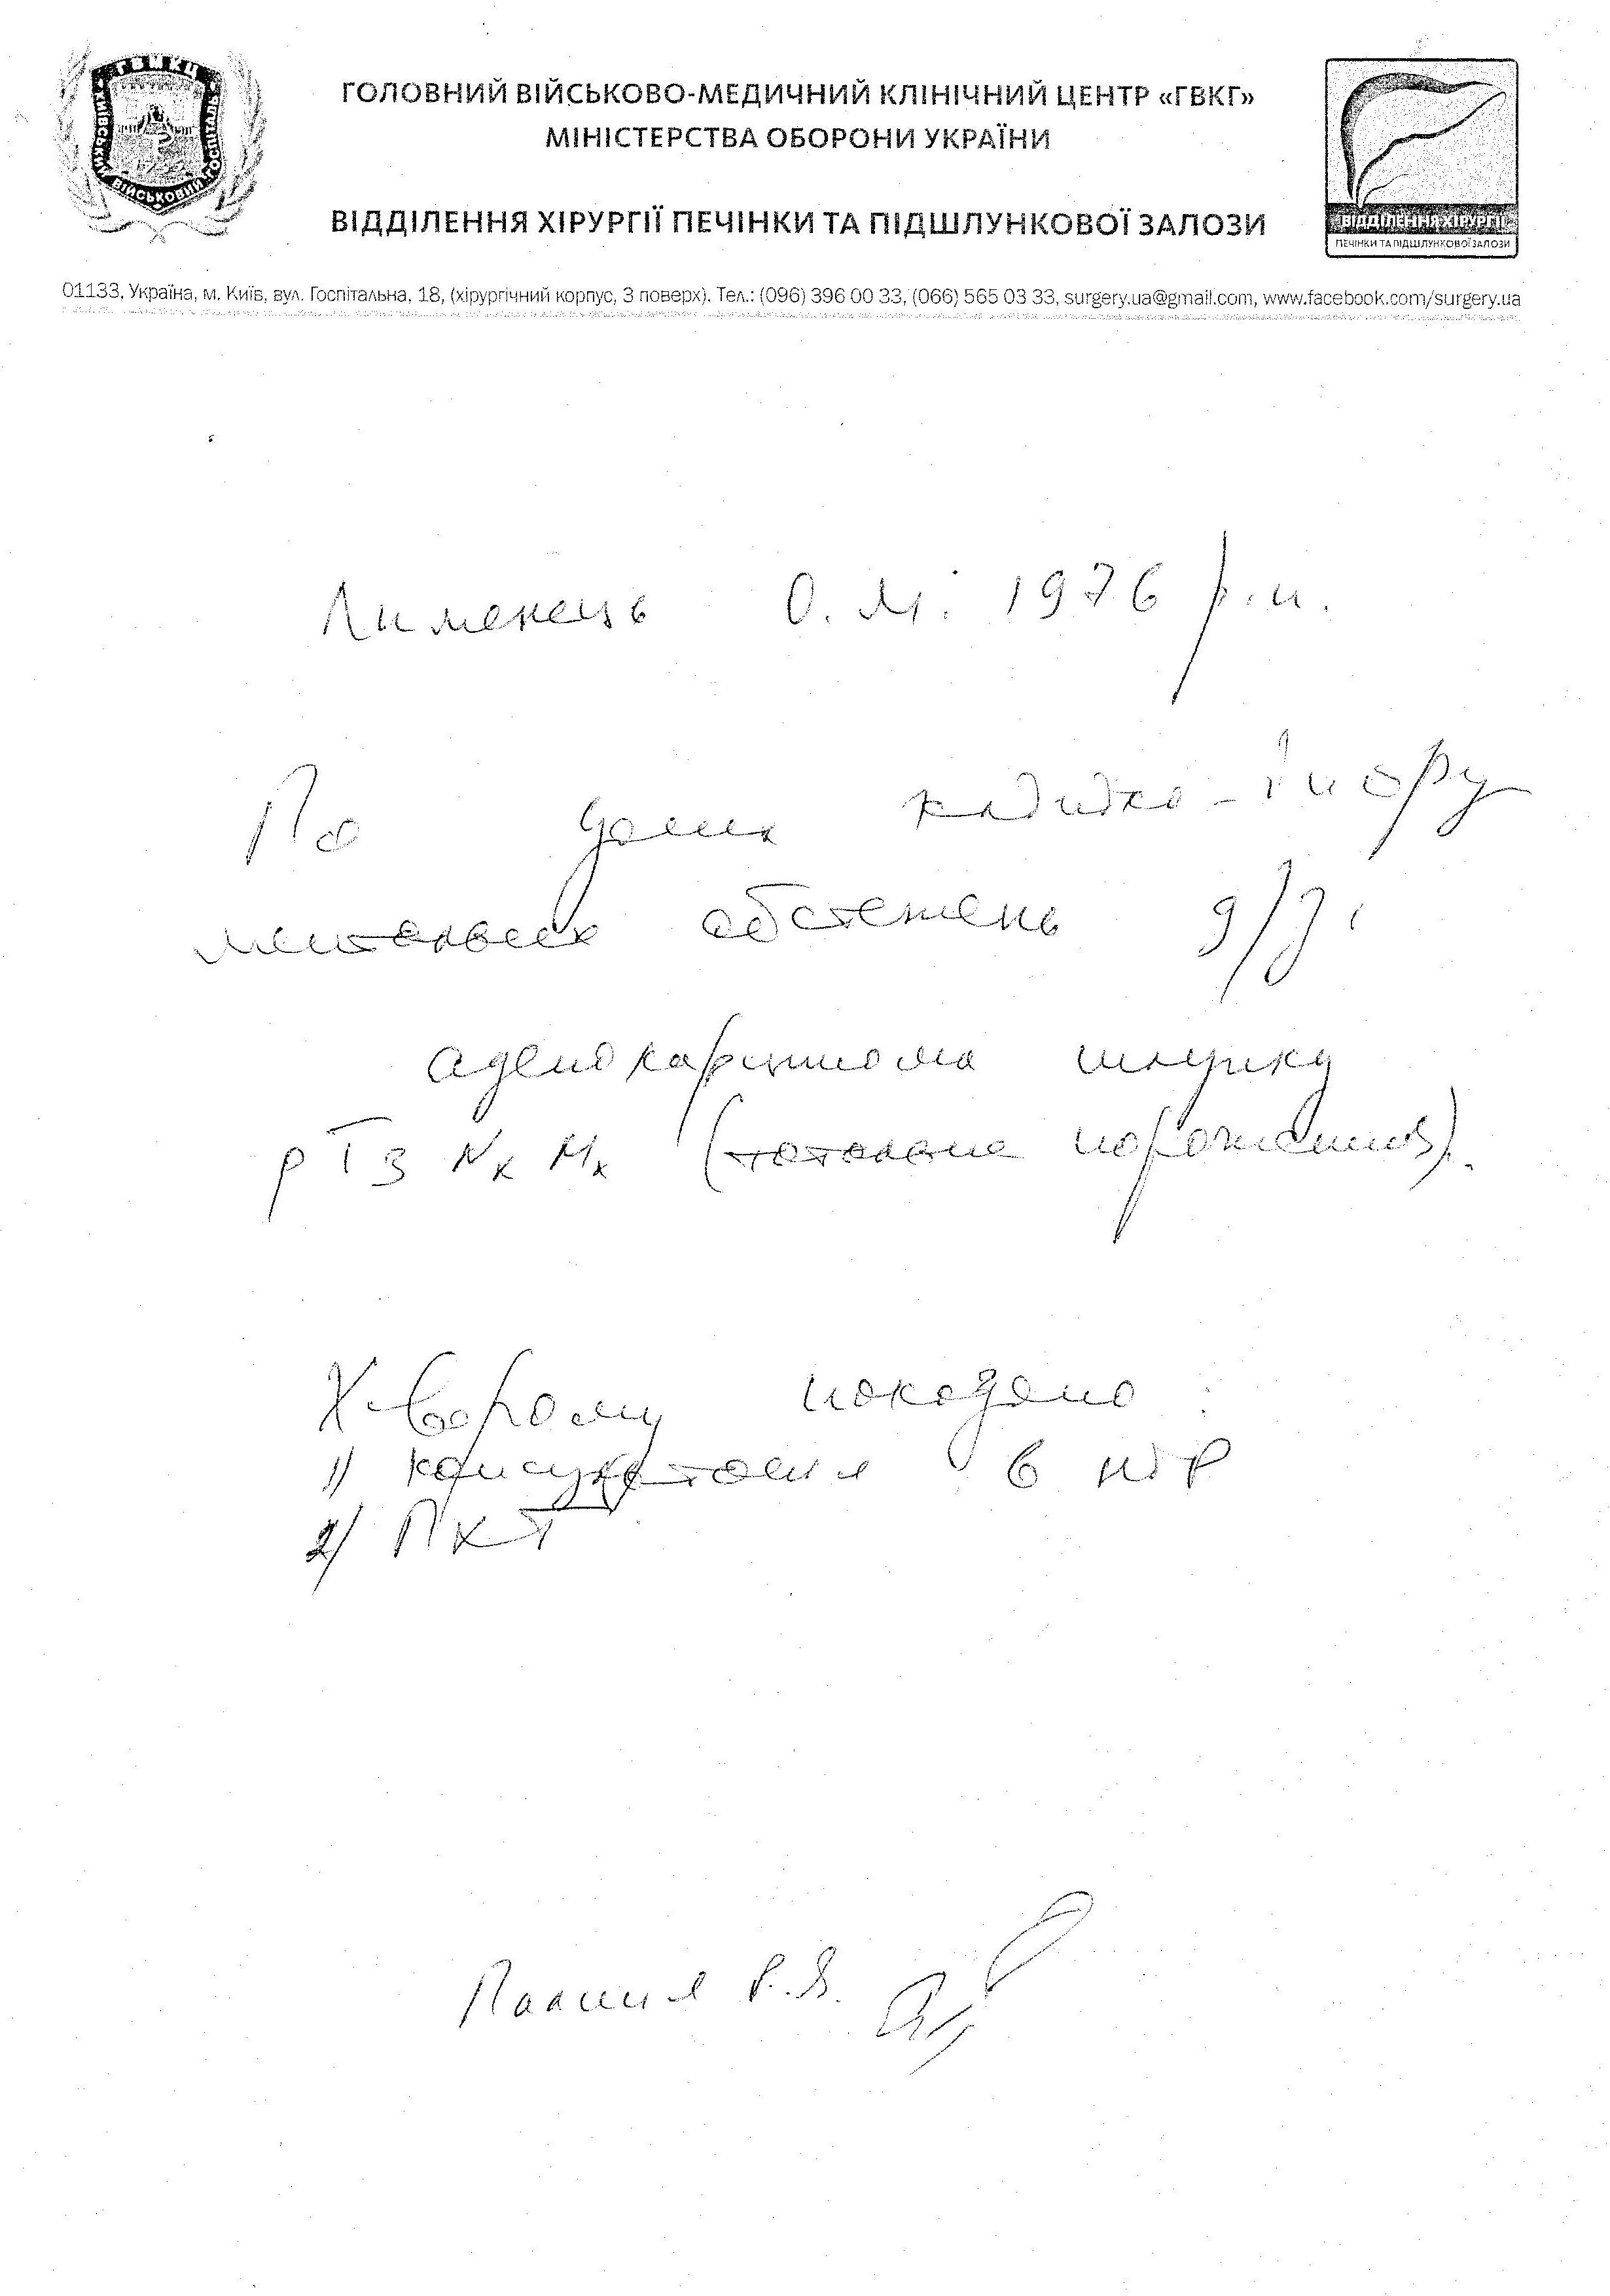 ГВМКЦ
КИЇВСЬКИЙ ВІЙСЬКОВИЙ ГОСПІТАЛЬ
ГОЛОВНИЙ ВІЙСЬКОВО-МЕДИЧНИЙ КЛІНІЧНИЙ ЦЕНТР «ГВКГ»
МІНІСТЕРСТВА ОБОРОНИ УКРАЇНИ
ВІДДІЛЕННЯ ХІРУРГІЇ ПЕЧІНКИ ТА ПІДШЛУНКОВОЇ ЗАЛОЗИ
ВІДДІЛЕННЯ ХІРУРГІЇ
ПЕЧІНКИ ТА ПІДШЛУНКОВОЇ ЗАЛОЗИ
01133, Україна, м. Київ, вул. Госпітальна, 18, (хірургічний корпус, 3 поверх). Тел.: (096) 396 00 33, (066) 565 03 33, surgery.ua@gmail.com, www.facebook.com/surgery.ua
Лименець О. М. 1976 р.н.
По даних клініко-інстру
ментальних обстежень д/з:
аденокарцинома шлунку
pT3 Nx Mx (тотальне пораження).
Х-ворому показано:
1) консультація в НІР
2) ПХТ
Р.В.